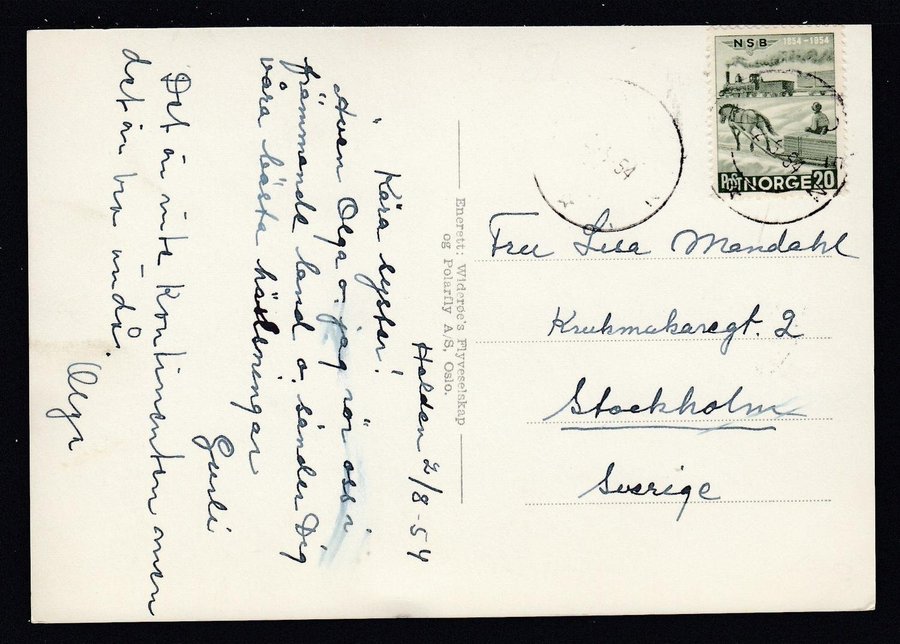 Halden 2/8-54
Kära syster!
Även Olga o. jag rör oss i
främmande land o. sänder Dig
våra bästa hälsningar
Gunli
Det är inte Kontinenten men
det är bra ändå. Olga
Enerett: Widerøe's Flyveselskap
og Polarfly A/S, Oslo.
NSB 1854-1954
POST NORGE 20
54
54
Fru Lisa Mandahl
Krukmakaregt. 2
Stockholm
Sverige